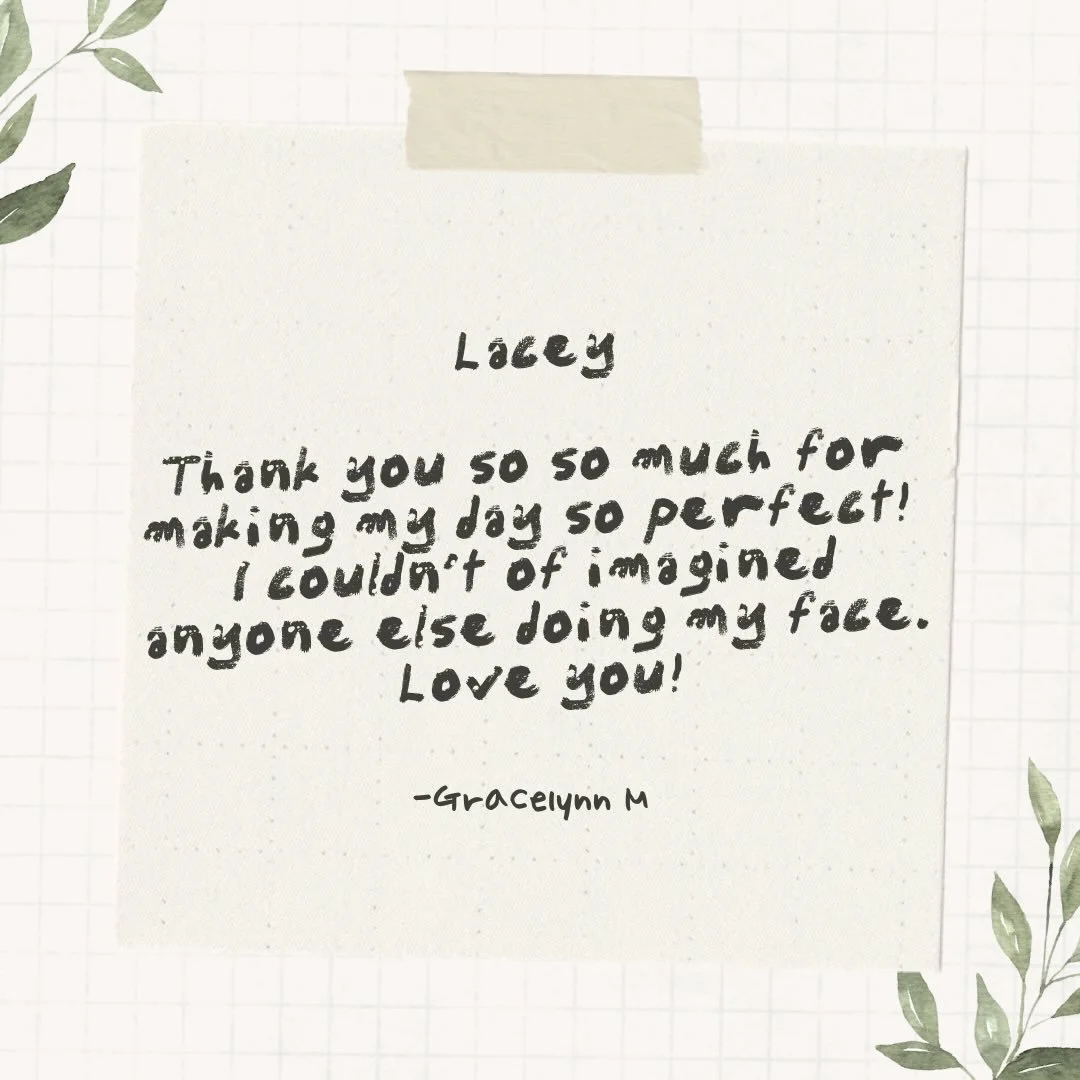 Lacey
Thank you so so much for
making my day so perfect!
I couldn't of imagined
anyone else doing my face.
Love you!
-Gracelynn M